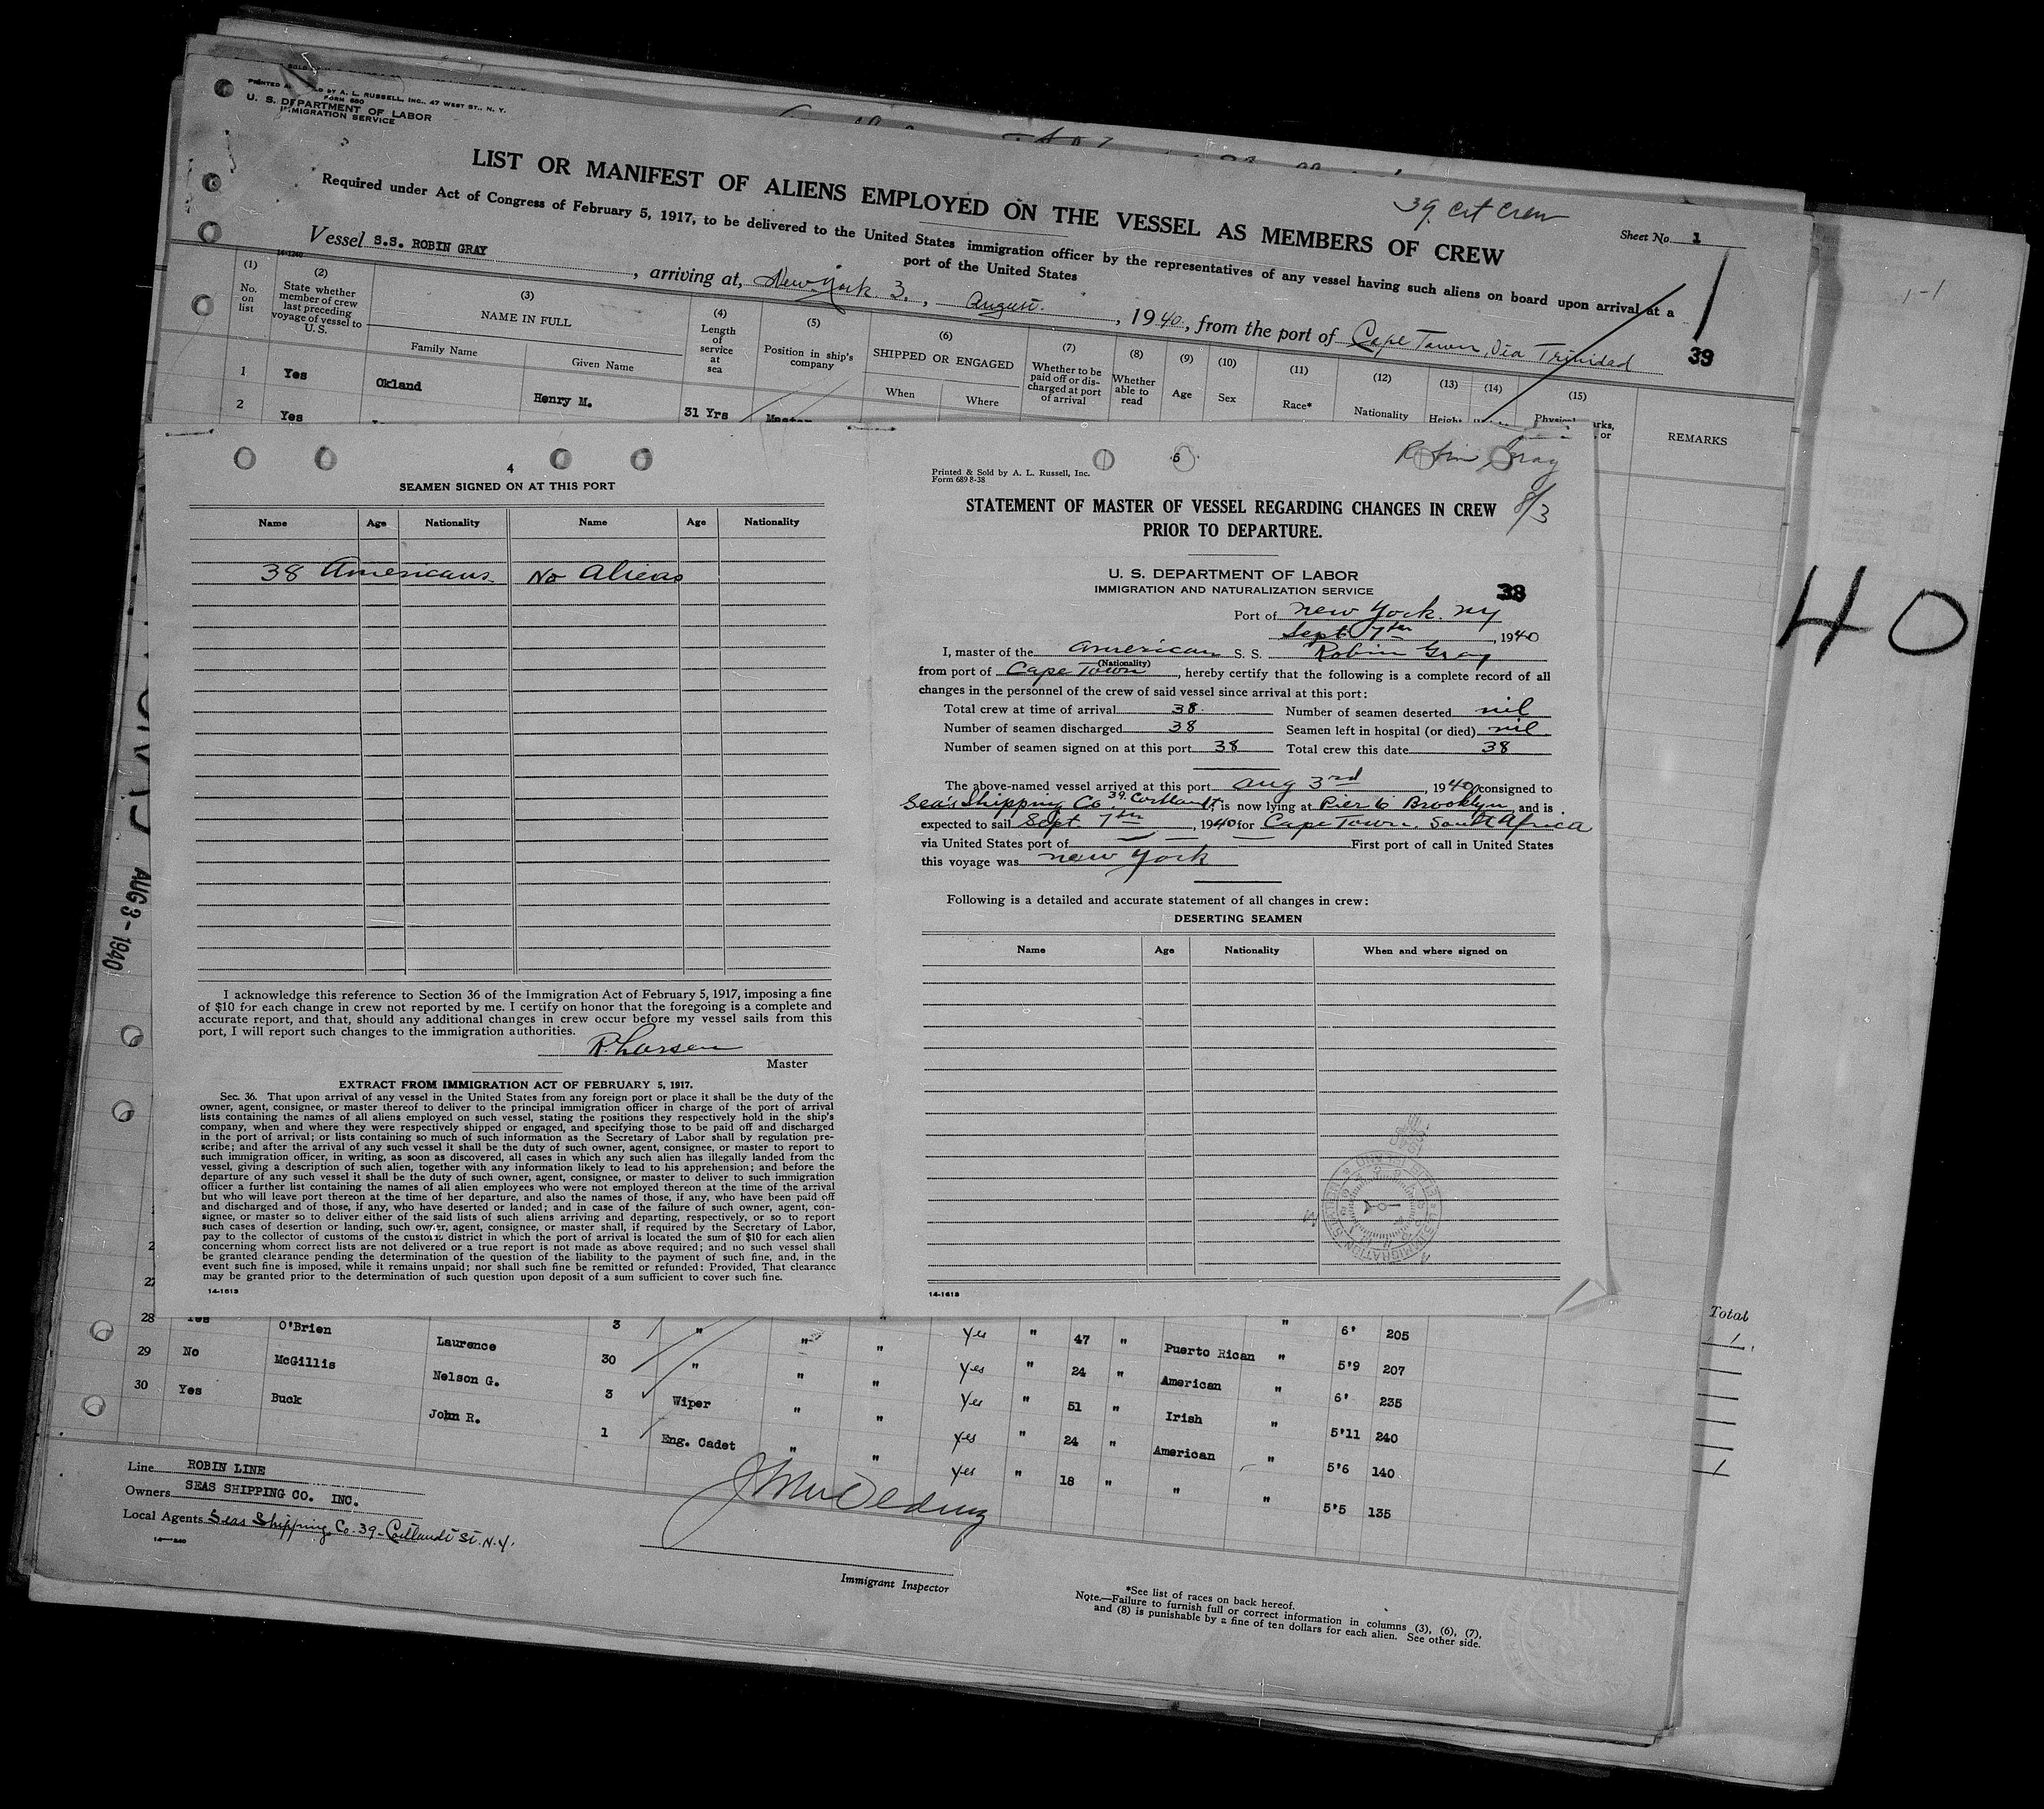 PRINTED BY A. L. RUSSELL, INC., 47 WEST ST., N. Y.
FORM 680
U. S. DEPARTMENT OF LABOR
IMMIGRATION SERVICE
LIST OR MANIFEST OF ALIENS EMPLOYED ON THE VESSEL AS MEMBERS OF CREW
39 Cit Crew
Sheet No. 1
Required under Act of Congress of February 5, 1917, to be delivered to the United States immigration officer by the representatives of any vessel having such aliens on board upon arrival at a
port of the United States
Vessel S.S. ROBIN GRAY, arriving at, New York 3., August., 1940, from the port of Cape Town, Via Trinidad
39
(1) No. on list
(2) State whether member of crew last preceding voyage of vessel to U. S.
(3) NAME IN FULL
Family Name Given Name
(4) Length of service at sea
(5) Position in ship's company
(6) SHIPPED OR ENGAGED
When Where
(7) Whether to be paid off or discharged at port of arrival
(8) Whether able to read
(9) Age
(10) Sex
(11) Race*
(12) Nationality
(13) Height
(14)
(15)
REMARKS
1 Yes Okland Henry M. 31 Yrs Master
2 Yes
4
SEAMEN SIGNED ON AT THIS PORT
Name Age Nationality Name Age Nationality
38 Americans. No Aliens
I acknowledge this reference to Section 36 of the Immigration Act of February 5, 1917, imposing a fine
of $10 for each change in crew not reported by me. I certify on honor that the foregoing is a complete and
accurate report, and that, should any additional changes in crew occur before my vessel sails from this
port, I will report such changes to the immigration authorities.
R. Larsen
Master
EXTRACT FROM IMMIGRATION ACT OF FEBRUARY 5, 1917.
Sec. 36. That upon arrival of any vessel in the United States from any foreign port or place it shall be the duty of the
owner, agent, consignee, or master thereof to deliver to the principal immigration officer in charge of the port of arrival
lists containing the names of all aliens employed on such vessel, stating the positions they respectively hold in the ship's
company, when and where they were respectively shipped or engaged, and specifying those to be paid off and discharged
in the port of arrival; or lists containing so much of such information as the Secretary of Labor shall by regulation pre-
scribe; and after the arrival of any such vessel it shall be the duty of such owner, agent, consignee, or master to report to
such immigration officer, in writing, as soon as discovered, all cases in which any such alien has illegally landed from the
vessel, giving a description of such alien, together with any information likely to lead to his apprehension; and before the
departure of any such vessel it shall be the duty of such owner, agent, consignee, or master to deliver to such immigration
officer a further list containing the names of all alien employees who were not employed thereon at the time of the arrival
but who will leave port thereon at the time of her departure, and also the names of those, if any, who have been paid off
and discharged and of those, if any, who have deserted or landed; and in case of the failure of such owner, agent, con-
signee, or master so to deliver either of the said lists of such aliens arriving and departing, respectively, or so to report
such cases of desertion or landing, such owner, agent, consignee, or master shall, if required by the Secretary of Labor,
pay to the collector of customs of the customs district in which the port of arrival is located the sum of $10 for each alien
concerning whom correct lists are not delivered or a true report is not made as above required; and no such vessel shall
be granted clearance pending the determination of the question of the liability to the payment of such fine, and, in the
event such fine is imposed, while it remains unpaid; nor shall such fine be remitted or refunded: Provided, That clearance
may be granted prior to the determination of such question upon deposit of a sum sufficient to cover such fine.
14-1613
Robin Gray
8/3
Printed & Sold by A. L. Russell, Inc.
Form 689 8-38
STATEMENT OF MASTER OF VESSEL REGARDING CHANGES IN CREW
PRIOR TO DEPARTURE.
U. S. DEPARTMENT OF LABOR
IMMIGRATION AND NATURALIZATION SERVICE
38
Port of New York. NY
Sept 7th, 1940
I, master of the American S. S. Robin Gray
(Nationality)
from port of Cape Town, hereby certify that the following is a complete record of all
changes in the personnel of the crew of said vessel since arrival at this port:
Total crew at time of arrival 38. Number of seamen deserted nil
Number of seamen discharged 38 Seamen left in hospital (or died) nil.
Number of seamen signed on at this port 38 Total crew this date 38
The above-named vessel arrived at this port Aug 3rd, 1940, consigned to
Seas Shipping Co. 39. Cortlandt, is now lying at Pier 6 Brooklyn, and is
expected to sail Sept. 7th, 1940 for Cape Town. South Africa
via United States port of First port of call in United States
this voyage was New York
Following is a detailed and accurate statement of all changes in crew:
DESERTING SEAMEN
Name Age Nationality When and where signed on
14-1613
40
AUG 3-1940
Total
6' 205
28 Yes O'Brien Laurence 3 " " " Yes " 47 " Puerto Rican " 5'9 207
29 No McGillis Nelson G. 30 " " " Yes " 24 " American " 6' 235
30 Yes Buck John R. 3 Wiper " " Yes " 51 " Irish " 5'11 240
1 Eng. Cadet " " Yes " 24 " American " 5'6 140
Yes " 18 " " " 5'5 135
Line ROBIN LINE
Owners SEAS SHIPPING CO. INC.
Local Agents Seas Shipping Co. 39 - Cortlandt St. N.Y.
Immigrant Inspector
*See list of races on back hereof.
Note.—Failure to furnish full or correct information in columns (3), (6), (7),
and (8) is punishable by a fine of ten dollars for each alien. See other side.